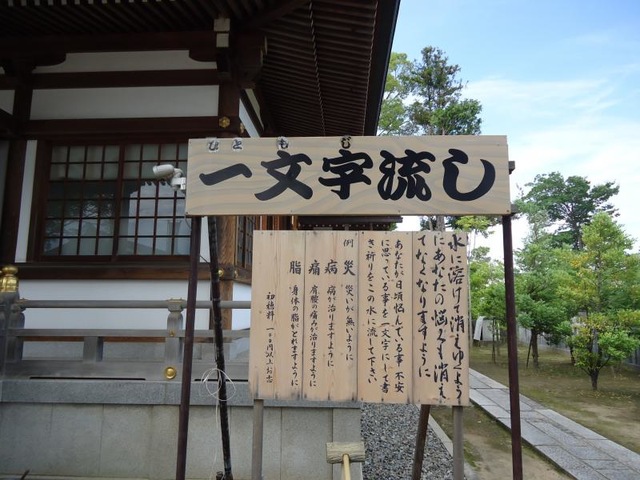 ひともじ
一文字流し
水に溶けて消えゆくよう
にあなたの悩みも消え
てなくなりますように
あなたが日頃悩んでいる事 不安
に思っている事を一文字にして書
き祈りをこの水に流して下さい
例 災 災いが無いように
病 病が治りますように
痛 肩腰の痛みが治りますように
脂 身体の脂がとれますように
初穂料 一〇〇円以上お志